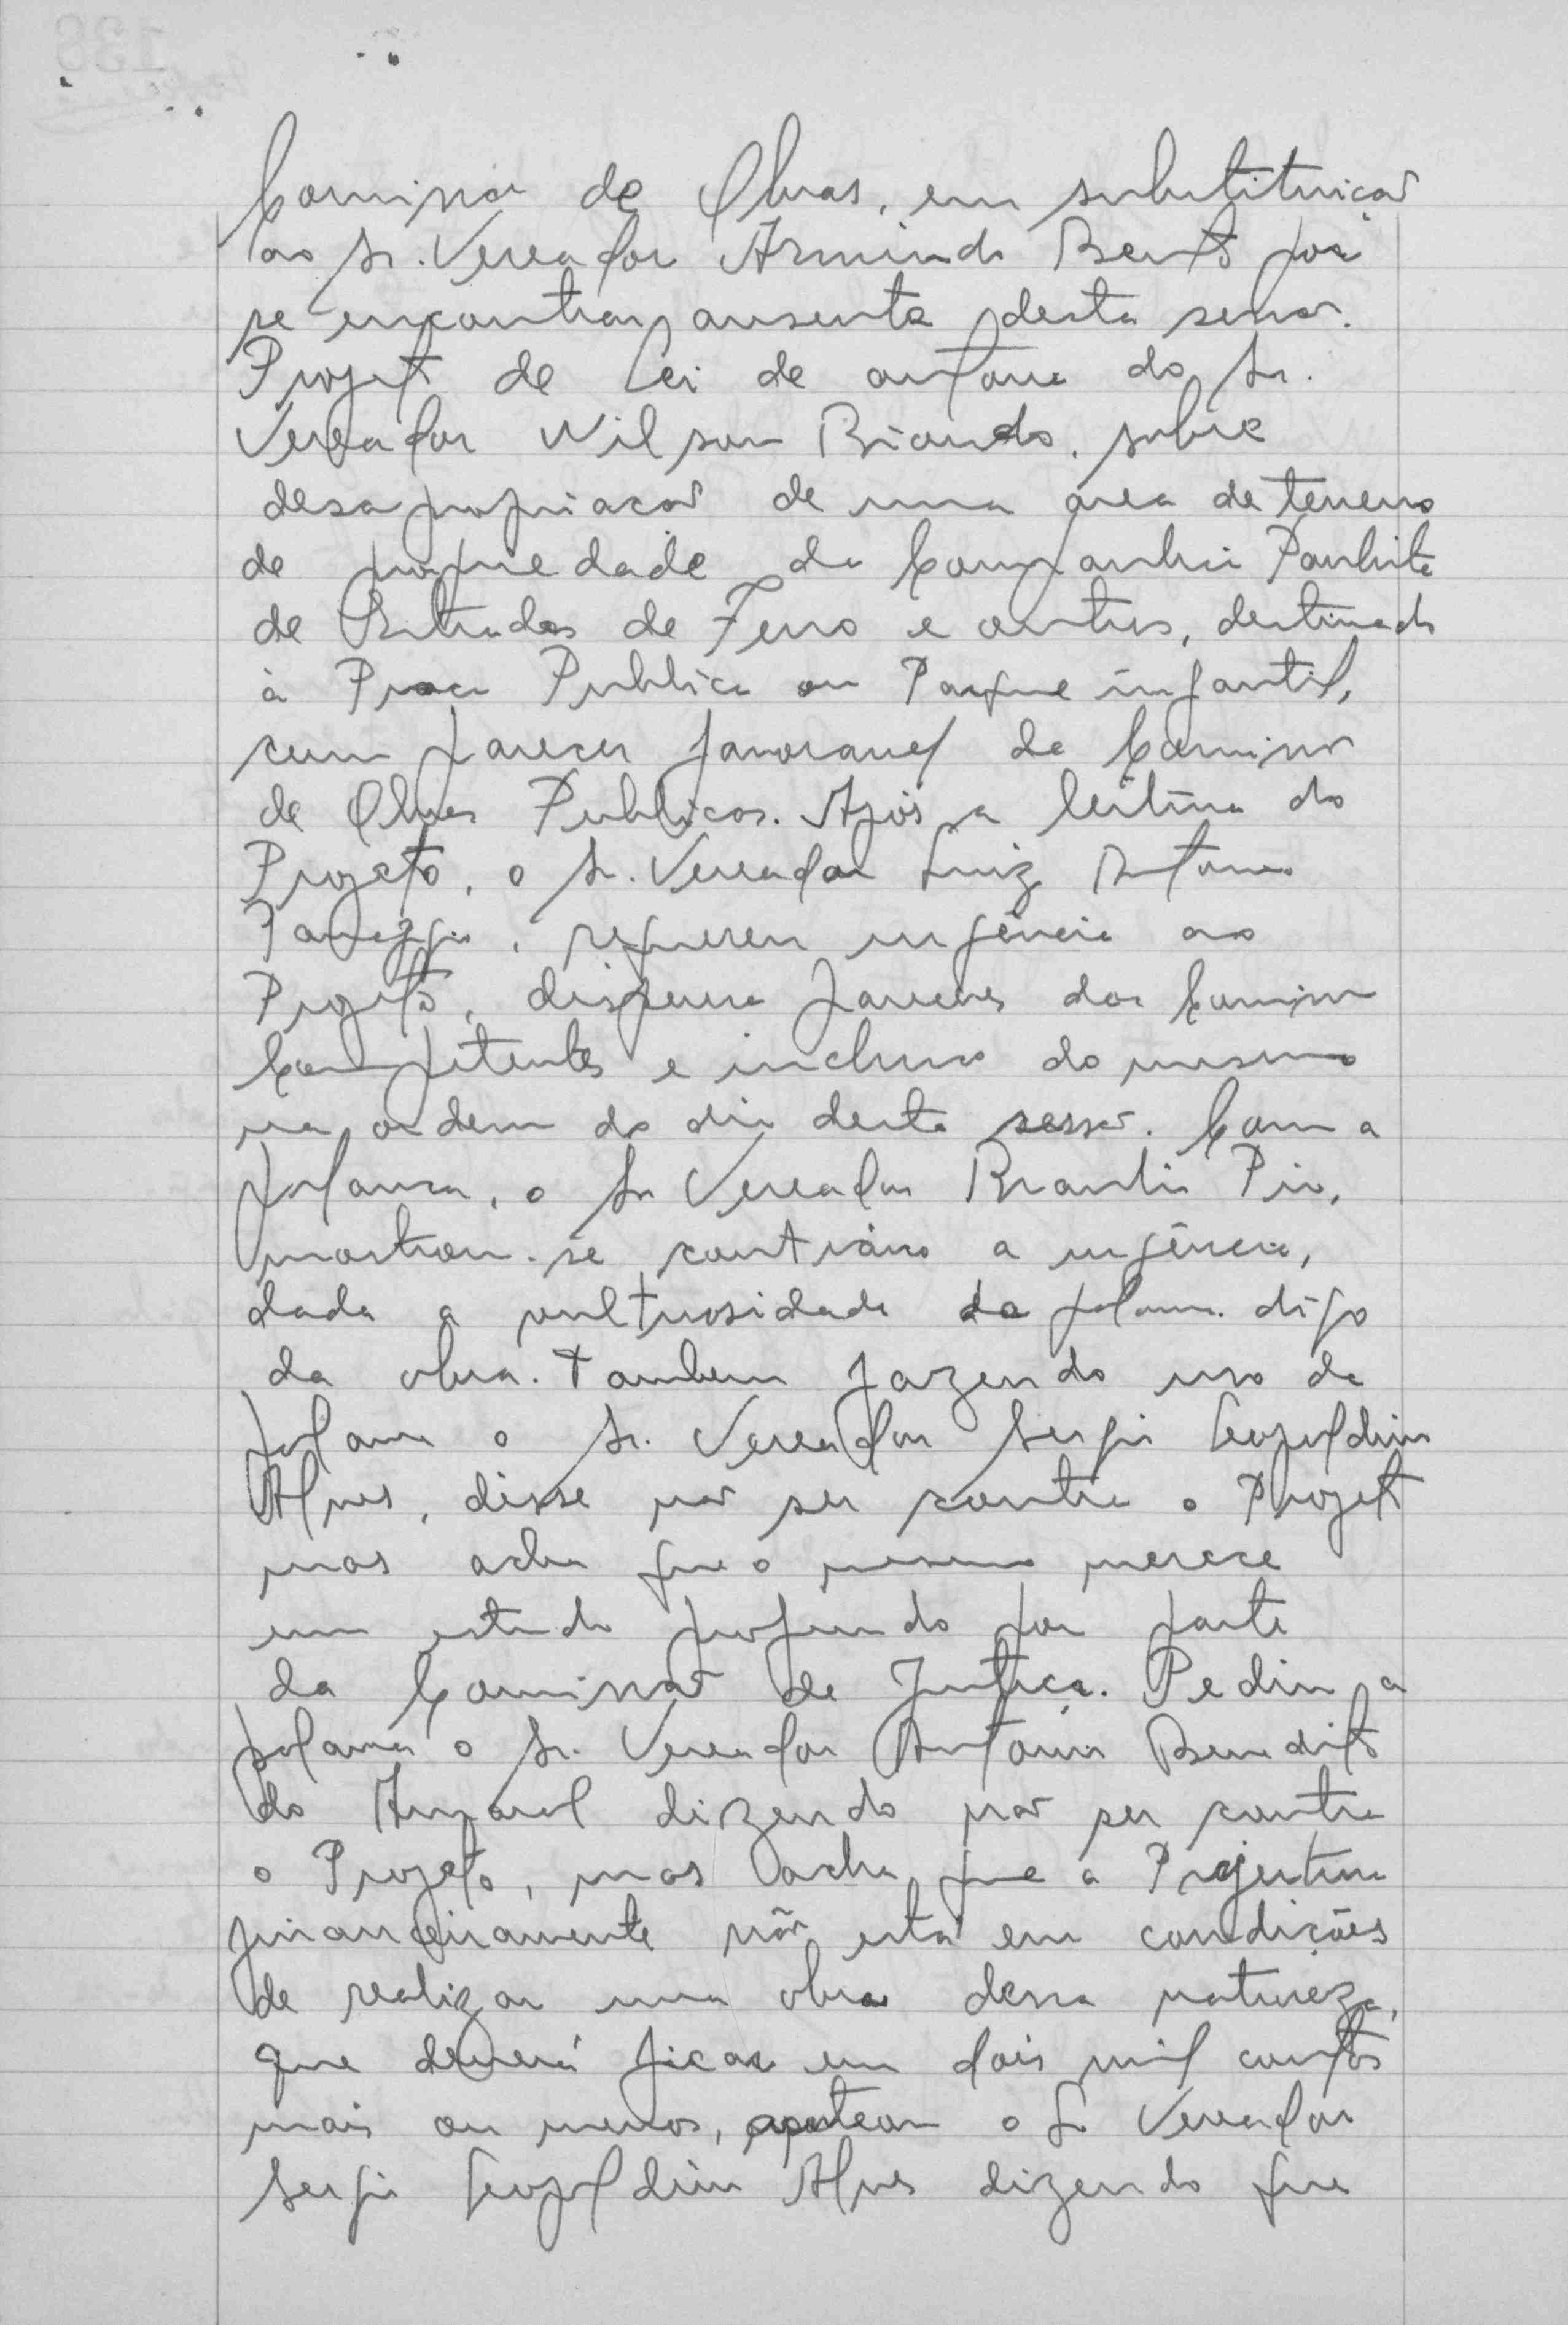 Comissão de Obras, em substituição
ao Sr. Vereador Armindo Bento por
se encontrar ausente desta sessão.
Projeto de Lei de autoria do Sr.
Vereador Wilson Brando, sobre
desapropriação de uma área de terreno
de propriedade da Companhia Paulista
de Estradas de Ferro e outros, destinado
à Praça Publica ou Parque infantil,
com parecer favoravel da Comissão
de Obras Publicas. Após a leitura do
Projeto, o Sr. Vereador Luiz Antonio
requereu urgência ao
Projeto, dispensa pareceres das Comissão
Competentes e inclusão do mesmo
na ordem do dia desta sessão. Com a
palavra, o Sr Vereador Pio,
mostrou-se contrário a urgência,
dada a vultuosidade da palavra digo
da obra. Tambem fazendo uso da
palavra o Sr. Vereador Sergio Leopoldino
Alves, disse não ser contra o Projeto
mas acha que o mesmo merece
um estudo profundo por parte
da Comissão de Justiça. Pediu a
palavra o Sr. Vereador Antonio Benedito
do Amaral dizendo não ser contra
o Projeto, mas acha que a Prefeitura
financeiramente não está em condições
de realizar uma obra dessa natureza,
que deverá ficar em dois mil contos
mais ou menos, aparteou o Sr Vereador
Sergio Leopoldino Alves dizendo que